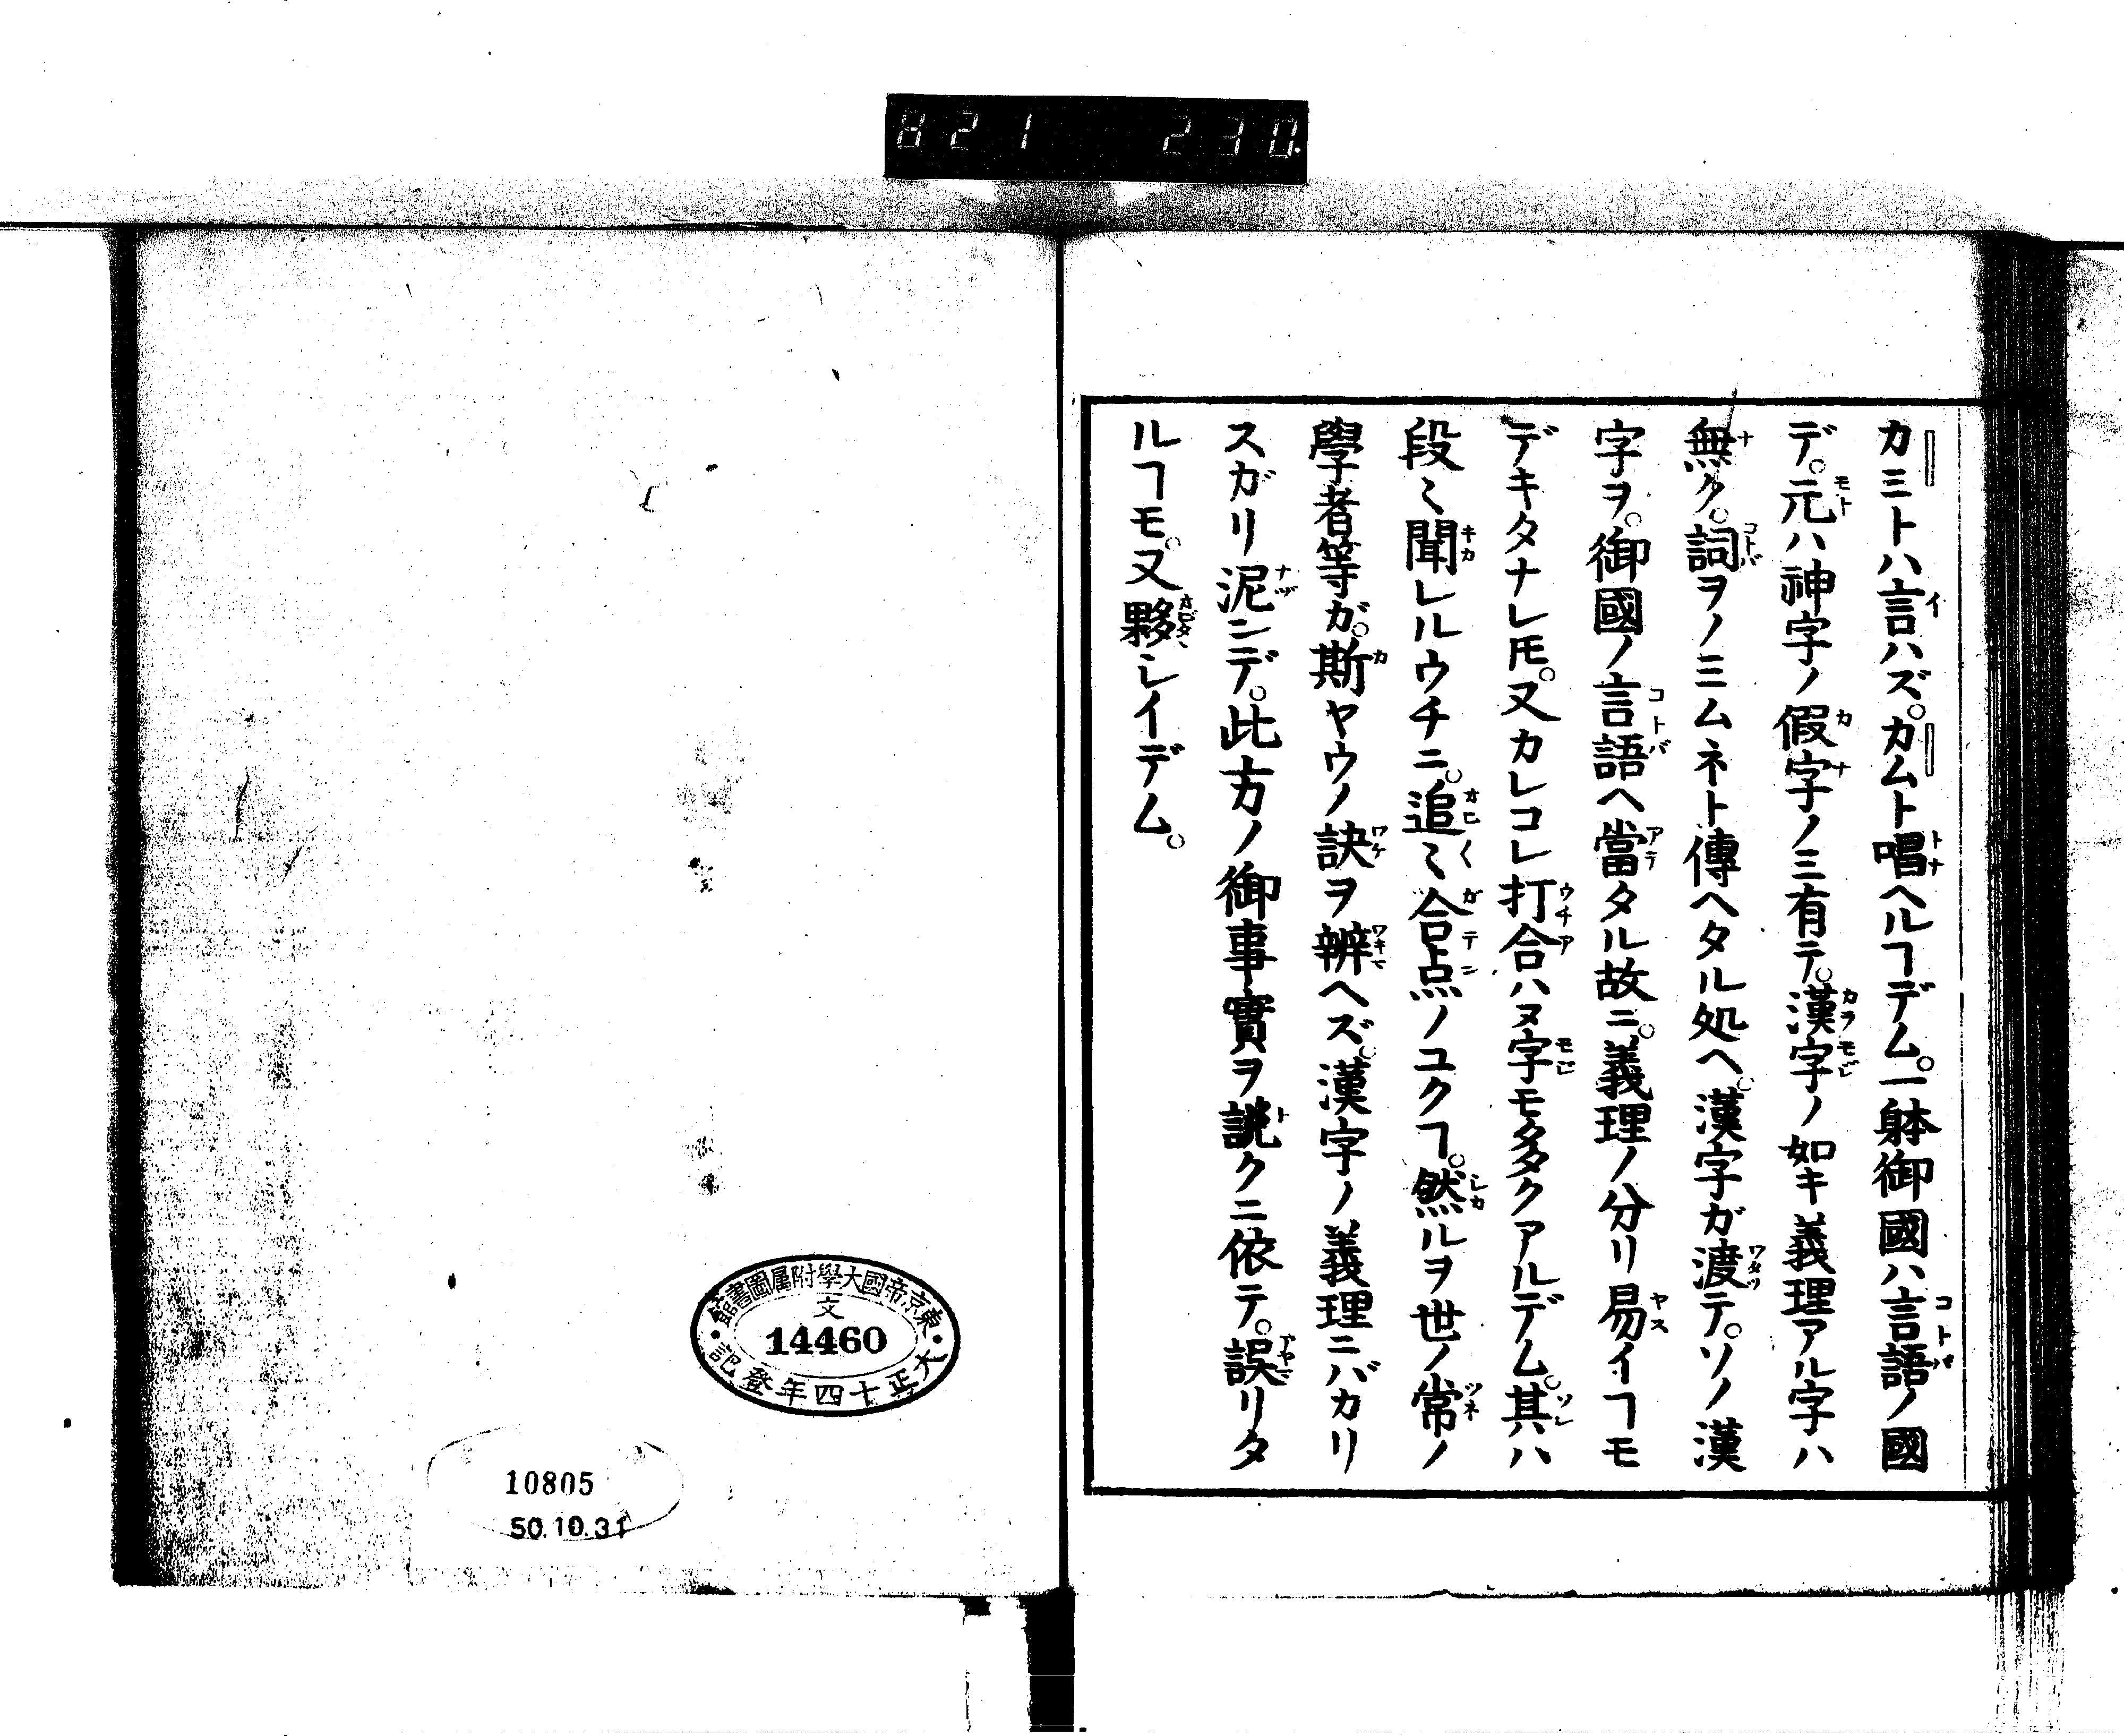 821 230.
カミトハ言ハズ。カムト唱ヘルヿデム。一躰御國ハ言語ノ國
デ。元ハ神字ノ假字ノミ有テ。漢字ノ如キ義理アル字ハ
無ク。詞ヲノミムネト傳ヘタル処ヘ。漢字ガ渡テ。ソノ漢
字ヲ。御國ノ言語ヘ當タル故ニ。義理ノ分リ易イヿモ
デキタナレ𪜈。又カレコレ打合ハヌ字モ多クアルデム。其ハ
段〻聞レルウチニ。追〻合点ノユクヿ。然ルヲ世ノ常ノ
學者等ガ。斯ヤウノ訣ヲ辨ヘズ。漢字ノ義理ニバカリ
スガリ泥ンデ。此方ノ御事實ヲ説クニ依テ。誤リタ
ルヿモ。又夥シイデム。
東京帝國大學附属圖書館
文
14460
大正十四年登記
10805
50.10.31